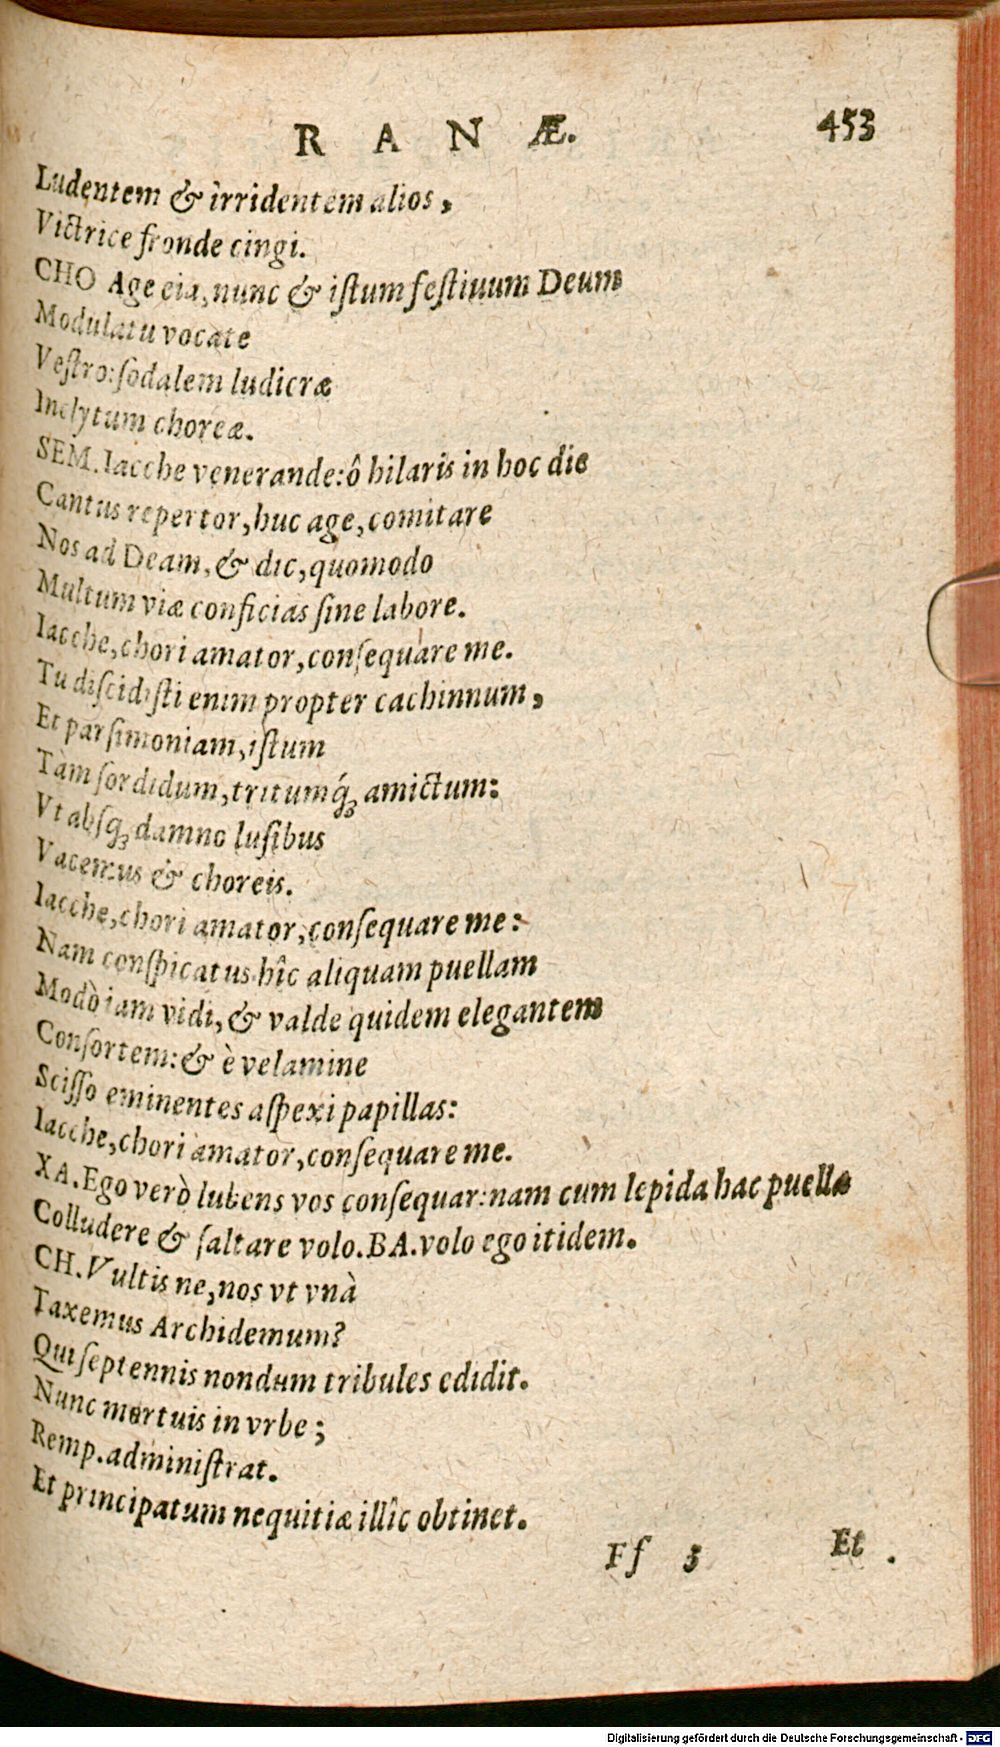 RANÆ. 453
Ludentem & ìrridentem alios,
Victrice fronde cingi.
CHO Age eia, nunc & iſtum feſtiuum Deum
Modulatu vocate
Veſtro: ſodalem ludicræ
Inclytum choreæ.
SEM. Iacche venerande: ô hilaris in hoc die
Cantus repertor, huc age, comitare
Nos ad Deam, & dic, quomodo
Multum viæ conficias ſine labore.
Iacche, chori amator, conſequare me.
Tu diſcidiſti enim propter cachinnum,
Et parſimoniam, iſtum
Tàm ſordidum, tritumq́ꝫ amictum:
Vt abſqꝫ damno luſibus
Vacemus & choreis.
Iacche, chori amator, conſequare me:
Nam conſpicatus hîc aliquam puellam
Modò iam vidi, & valde quidem elegantem
Conſortem: & è velamine
Sciſſo eminentes aſpexi papillas:
Iacche, chori amator, conſequare me.
XA. Ego verò lubens vos conſequar: nam cum lepida hac puella
Colludere & ſaltare volo. BA. volo ego itidem.
CH. Vultis ne, nos vt vnà
Taxemus Archidemum?
Qui ſeptennis nondum tribules edidit.
Nunc mortuis in vrbe;
Remp. adminiſtrat.
Et principatum nequitiæ illîc obtinet.
Ff 3 Et
Digitalisierung gefördert durch die Deutsche Forschungsgemeinschaft - DFG